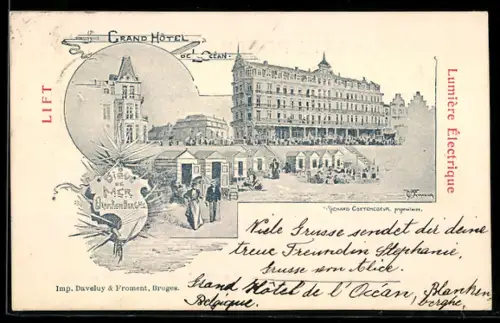 GRAND HÔTEL
DE L'OCÉAN
LIFT
Lumière Électrique
DE
MER
RICHARD COETENCOEUR, propriétaire.
Viele Grusse sendet dir deine
treue Freundin Stephanie,
Grusse von Alice.
Grand Hôtel de l'Océan, Blanken
berghe.
Belgique.
Imp. Daveluy & Froment, Bruges.